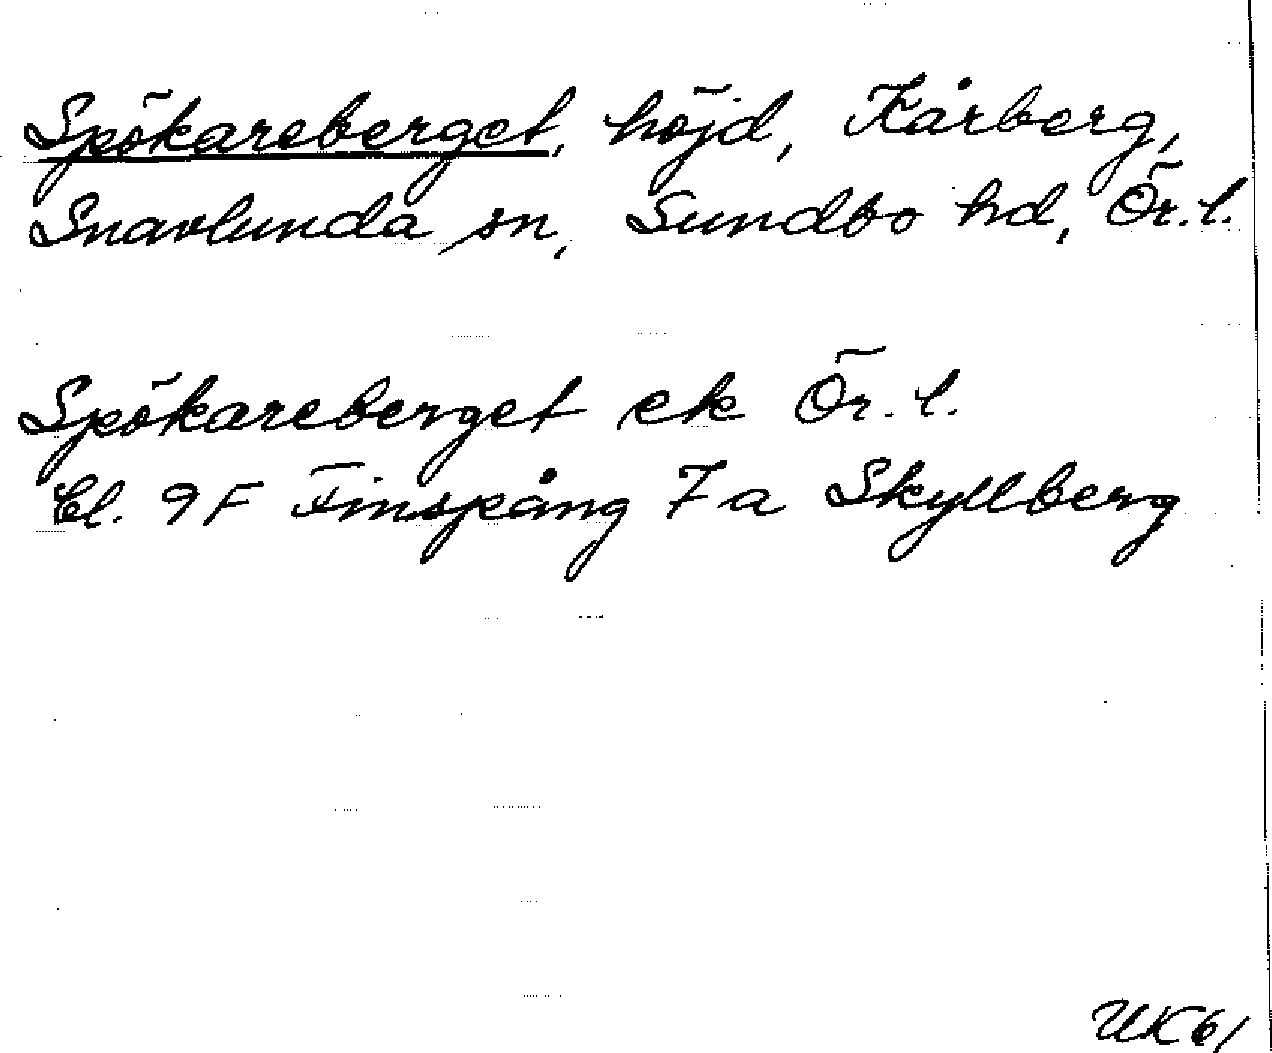 Spökareberget, höjd, Kårberg,
Snavlunda sn, Sundbo hd, Ör. l.
Spökareberget ek Ör. l.
Bl. 9F Finspång 7a Skyllberg
UK61